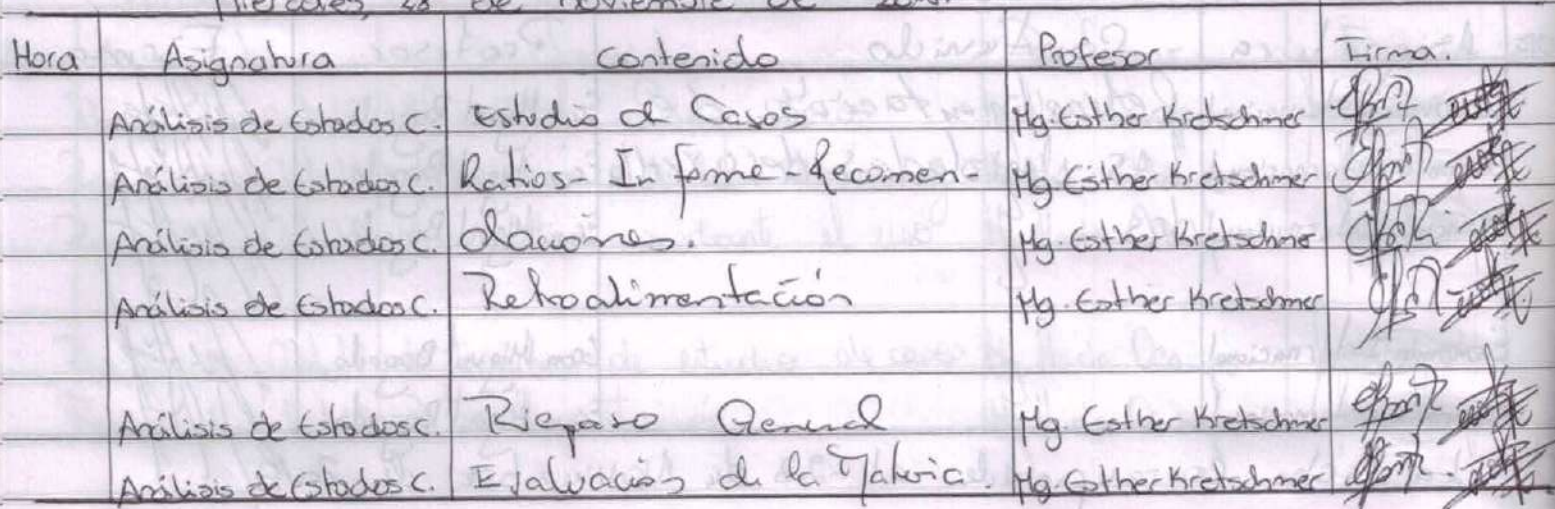 Miercoles, 28 de noviembre de
Hora Asignatura Contenido Profesor Firma.
Análisis de Estados C. Estudio de Casos Mg. Esther Kretschmer
Análisis de Estados C. Ratios - Informe - Recomen- Mg. Esther Kretschmer
Análisis de Estados C. daciones. Mg. Esther Kretschmer
Análisis de Estados C. Retroalimentación Mg. Esther Kretschmer
Análisis de Estados C. Riepaso General Mg. Esther Kretschmer
Análisis de Estados C. Evaluación de la Materia. Mg. Esther Kretschmer